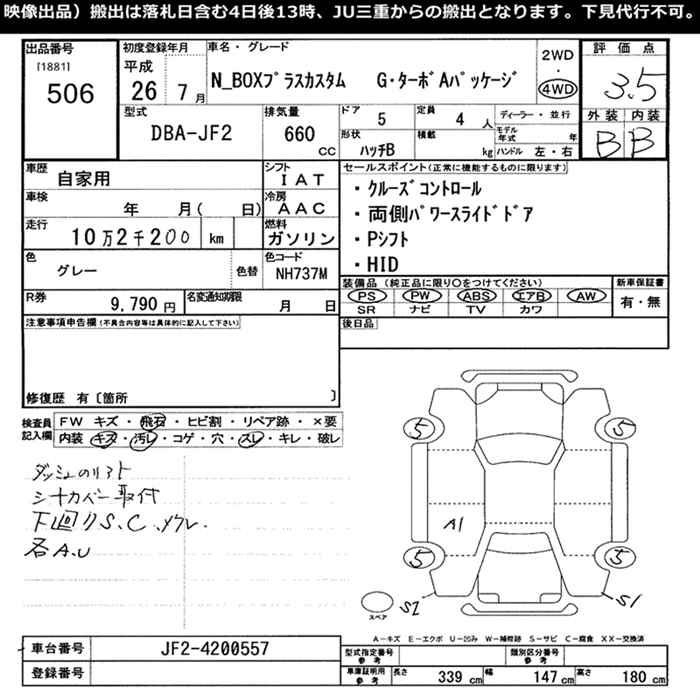 映像出品）搬出は落札日含む4日後13時、JU三重からの搬出となります。下見代行不可。
出品番号
[1881]
506
初度登録年月
平成
26 7 月
車名・グレード
N_BOXプラスカスタム G・ターボAパッケージ
2WD
・
4WD
評価点
3.5
外装 内装
B B
型式
DBA-JF2
排気量
660 cc
ドア
5
定員
4 人
ディーラー・並行
形状
ハッチB
積載
kg
モデル年式 年
ハンドル 左・右
車歴
自家用
シフト
IAT
車検
年 月( 日)
冷房
AAC
走行
10万2千200 km
燃料
ガソリン
色
グレー
色替
色コード
NH737M
R券
9,790 円
名変通知期限
月 日
セールスポイント(正常に機能するものに限ります)
・クルーズコントロール
・両側パワースライドドア
・Pシフト
・HID
装備品（純正品に限り○をつけてください）
PS PW ABS エアB AW
SR ナビ TV カワ
新車保証書
有・無
後日品
注意事項申告欄(不具合内容等は具体的に記入して下さい)
修復歴 有〔箇所 〕
検査員記入欄
FW キズ・飛石・ヒビ割・リペア跡・×要
内装 キズ・汚レ・コゲ・穴・スレ・キレ・破レ
ダッシュのリあと
シートカバー取付
下廻りS.C.メクレ.
各A.U
5 5
A1
5 5
S2 S1
スペア
A－キズ E－エクボ U－凹み W－補修跡 S－サビ C－腐食 XX－交換済
車台番号 JF2-4200557
登録番号
型式指定番号 参考
類別区分番号 参考
車庫証明用 参考 長さ 339 cm 幅 147 cm 高さ 180 cm